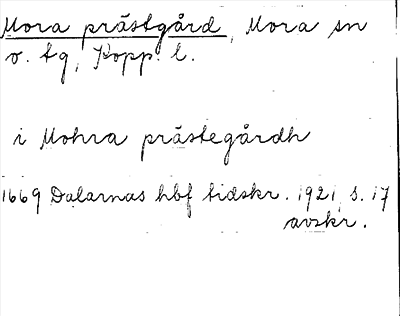 Mora prästgård, Mora sn
o. tg, Kopp. l.
i Mohra prästegårdh
1669 Dalarnas hbf tidskr. 1921, s. 17
avskr.